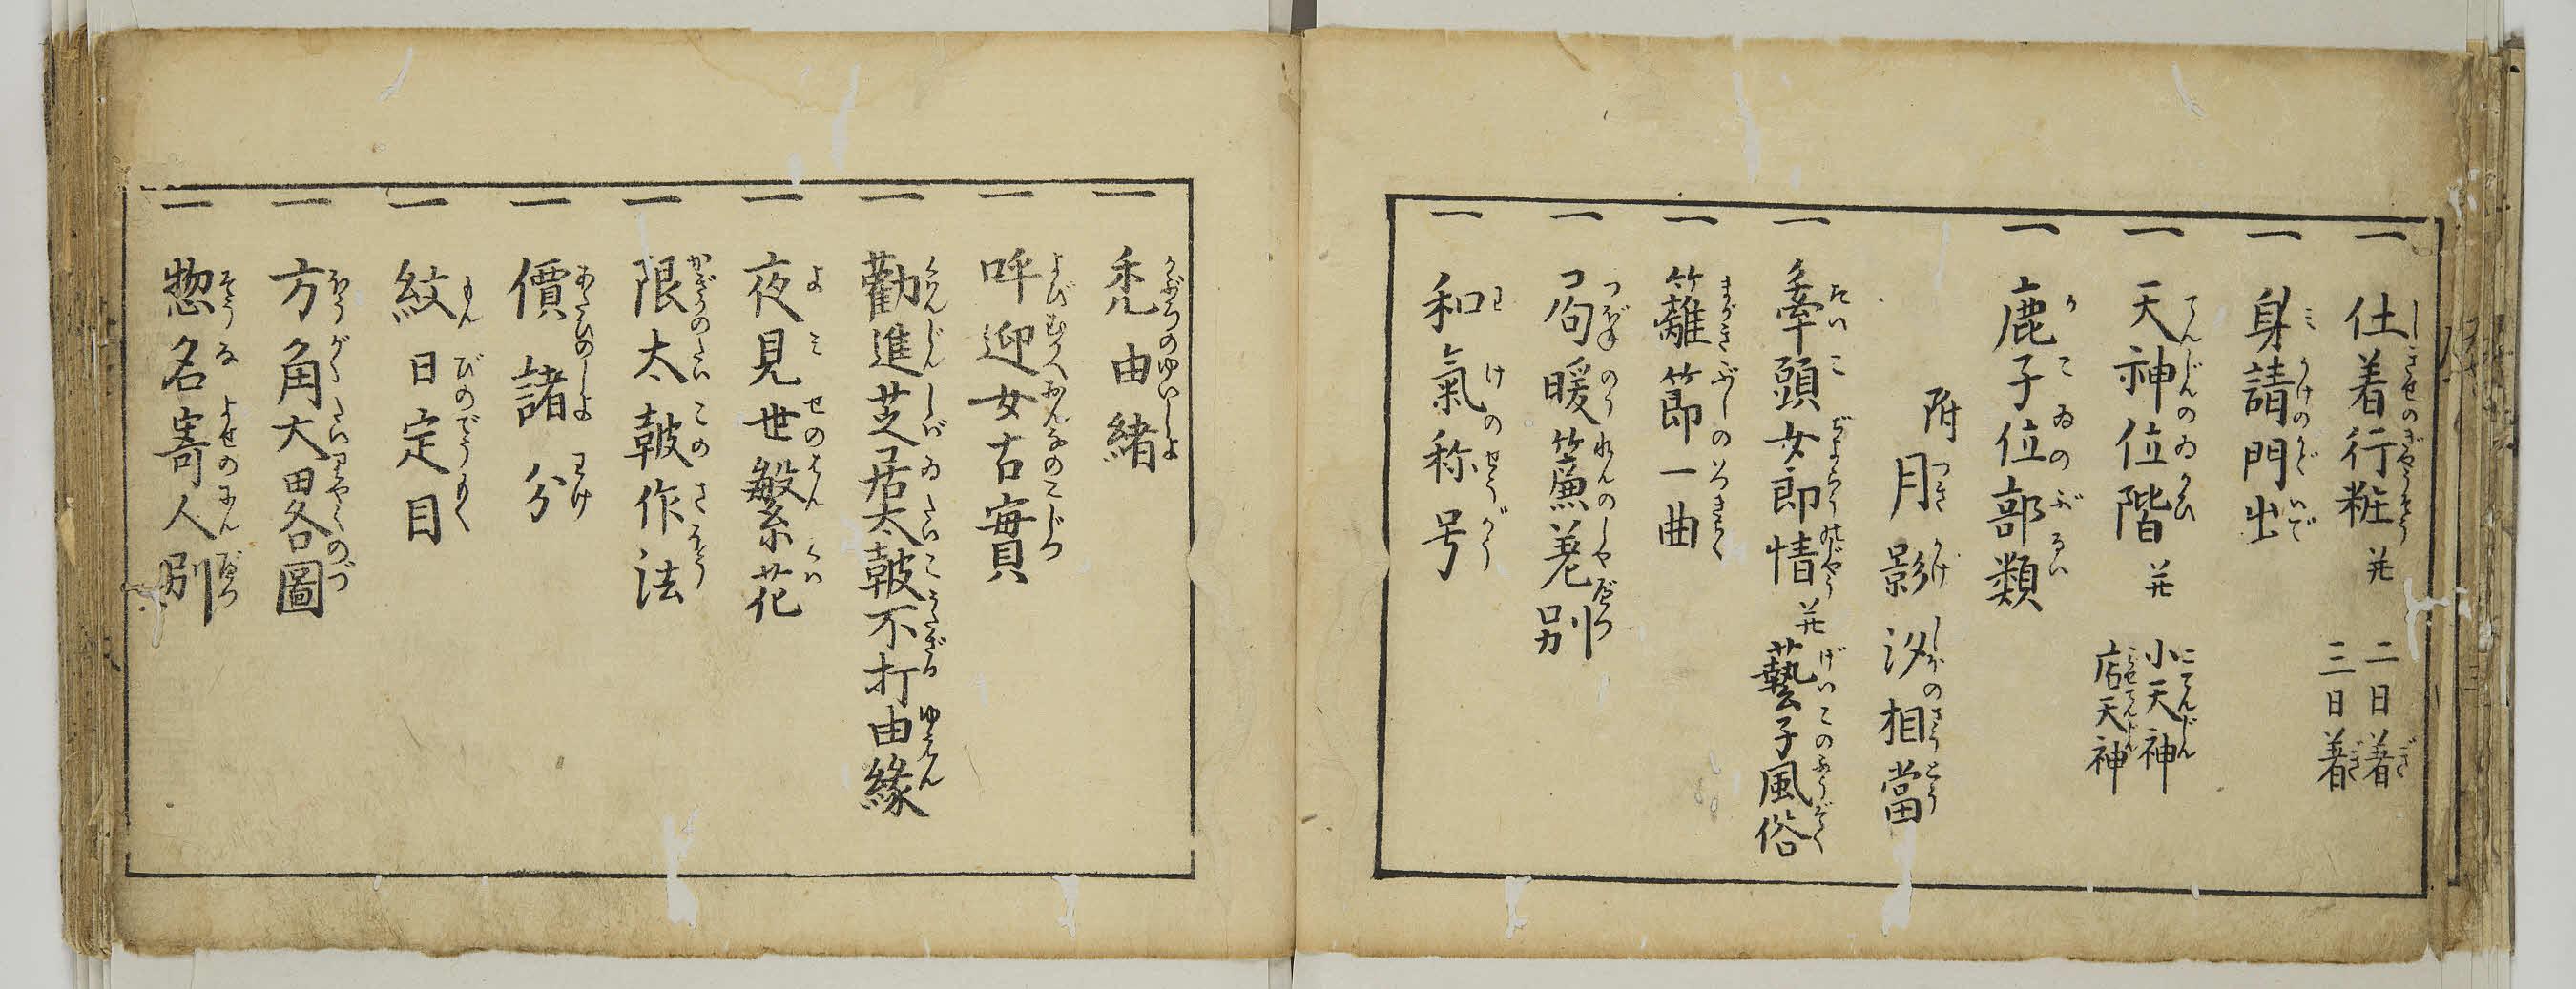 一 仕着行粧 并 二日着 三日着
一 身請門出
一 天神位階 并 小天神 店天神
一 鹿子位部類
附 月影汐相當
一 牽頭女郎情 并 藝子風俗
一 籬節一曲
一 局暖簾差別
一 和氣称号
一 禿由緒
一 呼迎女古實
一 勸進芝居太皷不打由緣
一 夜見世繁花
一 限太皷作法
一 價諸分
一 紋日定目
一 方角大畧圖
一 惣名寄人別